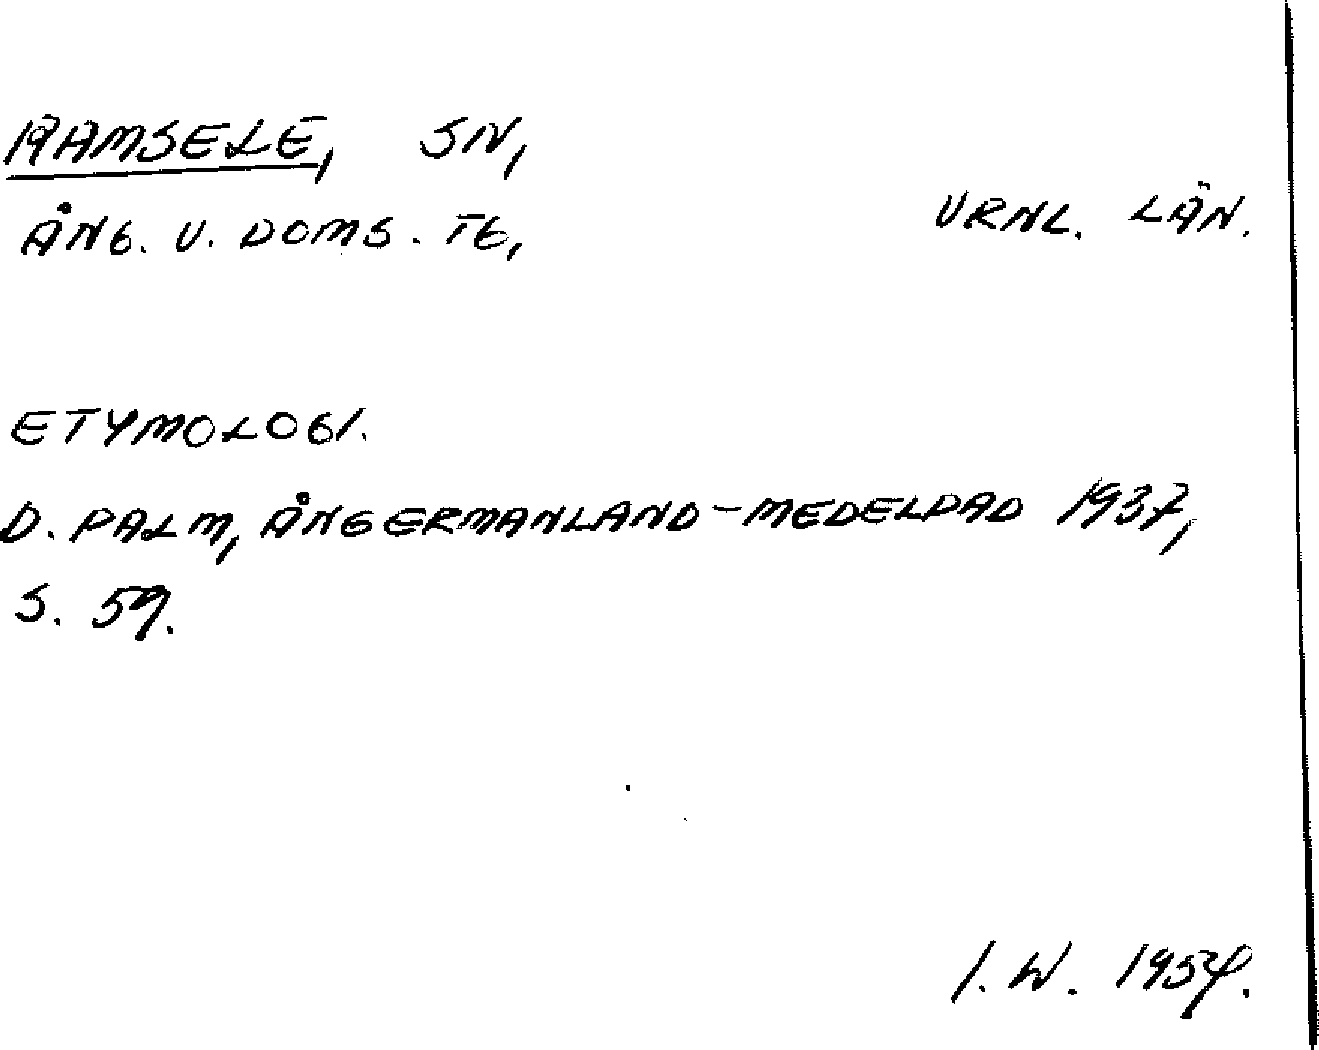 RAMSELE, SN,
ÅNG. V. DOMS. TG, VRNL. LÄN.
ETYMOLOGI.
D. PALM, ÅNGERMANLAND-MEDELPAD 1937,
S. 59.
I. W. 1954.